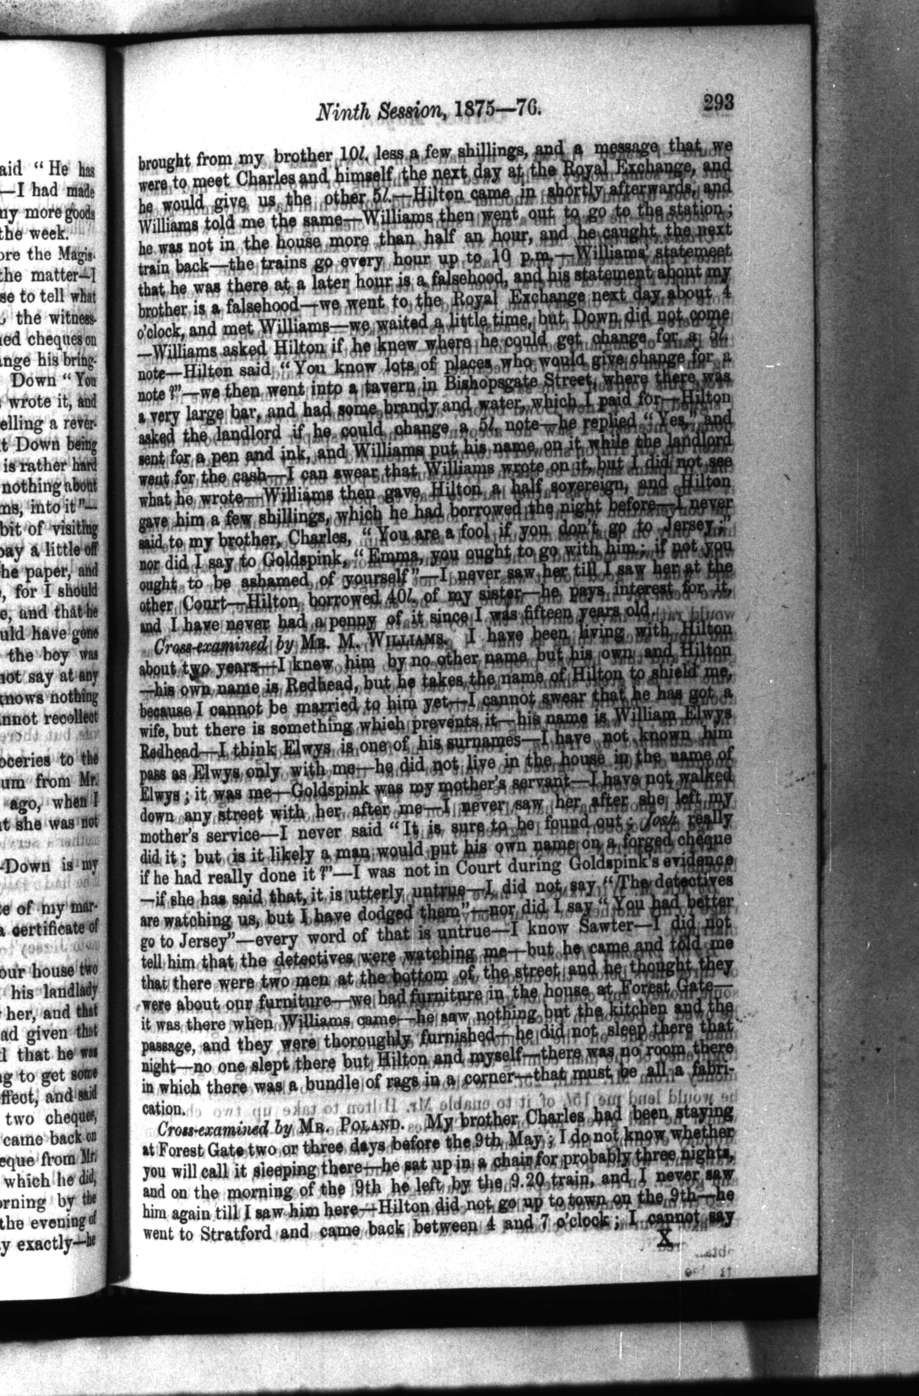 aid "He has
—I had made
ny more goods
the week.
ore the Magis-
the matter—I
se to tell what
the witness-
ned cheques on
nge his bring-
Down "You
wrote it, and
elling a rever-
t Down being
is rather hard
nothing about
ms, into it"—
bit of visiting
pay a little off
he paper, and
, for I should
e, and that he
uld have gone
the boy was
not say at any
knows nothing
nnot recollect
oceries to the
um from Mr.
ago, when I
at she was not
-Down is my
te of my mar-
a certificate of
our house two
his landlady
her, and that
ad given that
d that he was
ng to get some
ffect, and said
two cheques,
came back on
eque from Mr.
which he did,
orning by the
the evening of
y exactly—he
Ninth Session, 1875—76. 293
brought from my brother 10l. less a few shillings, and a message that we
were to meet Charles and himself the next day at the Royal Exchange, and
he would give us the other 5l.—Hilton came in shortly afterwards, and
Williams told me the same—Williams then went out to go to the station;
he was not in the house more than half an hour, and he caught the next
train back—the trains go every hour up to 10 p.m.—Williams' statement
that he was there at a later hour is a falsehood, and his statement about my
brother is a falsehood—we went to the Royal Exchange next day about 4
o'clock, and met Williams—we waited a little time, but Down did not come
—Williams asked Hilton if he knew where he could get change for a 5l.
note—Hilton said "You know lots of places who would give change for a
note?"—we then went into a tavern in Bishopsgate Street, where there was
a very large bar, and had some brandy and water, which I paid for—Hilton
asked the landlord if he could change a 5l. note—he replied "Yes," and
sent for a pen and ink, and Williams put his name on it while the landlord
went for the cash—I can swear that Williams wrote on it, but I did not see
what he wrote—Williams then gave Hilton a half sovereign, and Hilton
gave him a few shillings, which he had borrowed the night before—I never
said to my brother, Charles, "You are a fool if you don't go to Jersey,"
nor did I say to Goldspink, "Emma, you ought to go with him; if not you
ought to be ashamed of yourself"—I never saw her till I saw her at the
other Court—Hilton borrowed 40l. of my sister—he pays interest for it,
and I have never had a penny of it since I was fifteen years old.
Cross-examined by MR. M. WILLIAMS. I have been living with Hilton
about two years—I knew him by no other name but his own and Hilton
—his own name is Redhead, but he takes the name of Hilton to shield me,
because I cannot be married to him yet—I cannot swear that he has got a
wife, but there is something which prevents it—his name is William Elwys
Redhead—I think Elwys is one of his surnames—I have not known him
pass as Elwys only with me—he did not live in the house in the name of
Elwys; it was me—Goldspink was my mother's servant—I have not walked
down any street with her after me—I never saw her after she left my
mother's service—I never said "It is sure to be found out; Josh really
did it; but is it likely a man would put his own name on a forged cheque
if he had really done it?"—I was not in Court during Goldspink's evidence
—if she has said that, it is utterly untrue—I did not say "The detectives
are watching us, but I have dodged them"—nor did I say "You had better
go to Jersey"—every word of that is untrue—I know Sawter—I did not
tell him that the detectives were watching me—but he came and told me
that there were two men at the bottom of the street and he thought they
were about our furniture—we had furniture in the house at Forest Gate—
it was there when Williams came—he saw nothing but the kitchen and the
passage, and they were thoroughly furnished—he did not sleep there that
night—no one slept there but Hilton and myself—there was no room there
in which there was a bundle of rags in a corner—that must be all a fabri-
cation.
Cross-examined by MR. POLAND. My brother Charles had been staying
at Forest Gate two or three days before the 9th May; I do not know whether
you will call it sleeping there—he sat up in a chair for probably three nights,
and on the morning of the 9th he left by the 9.20 train, and I never saw
him again till I saw him here—Hilton did not go up to town on the 9th—he
went to Stratford and came back between 4 and 7 o'clock; I cannot say
X